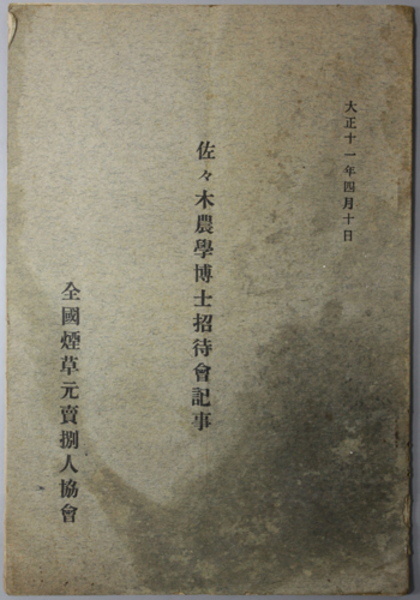 大正十一年四月十日
佐々木農學博士招待會記事
全國煙草元賣捌人協會